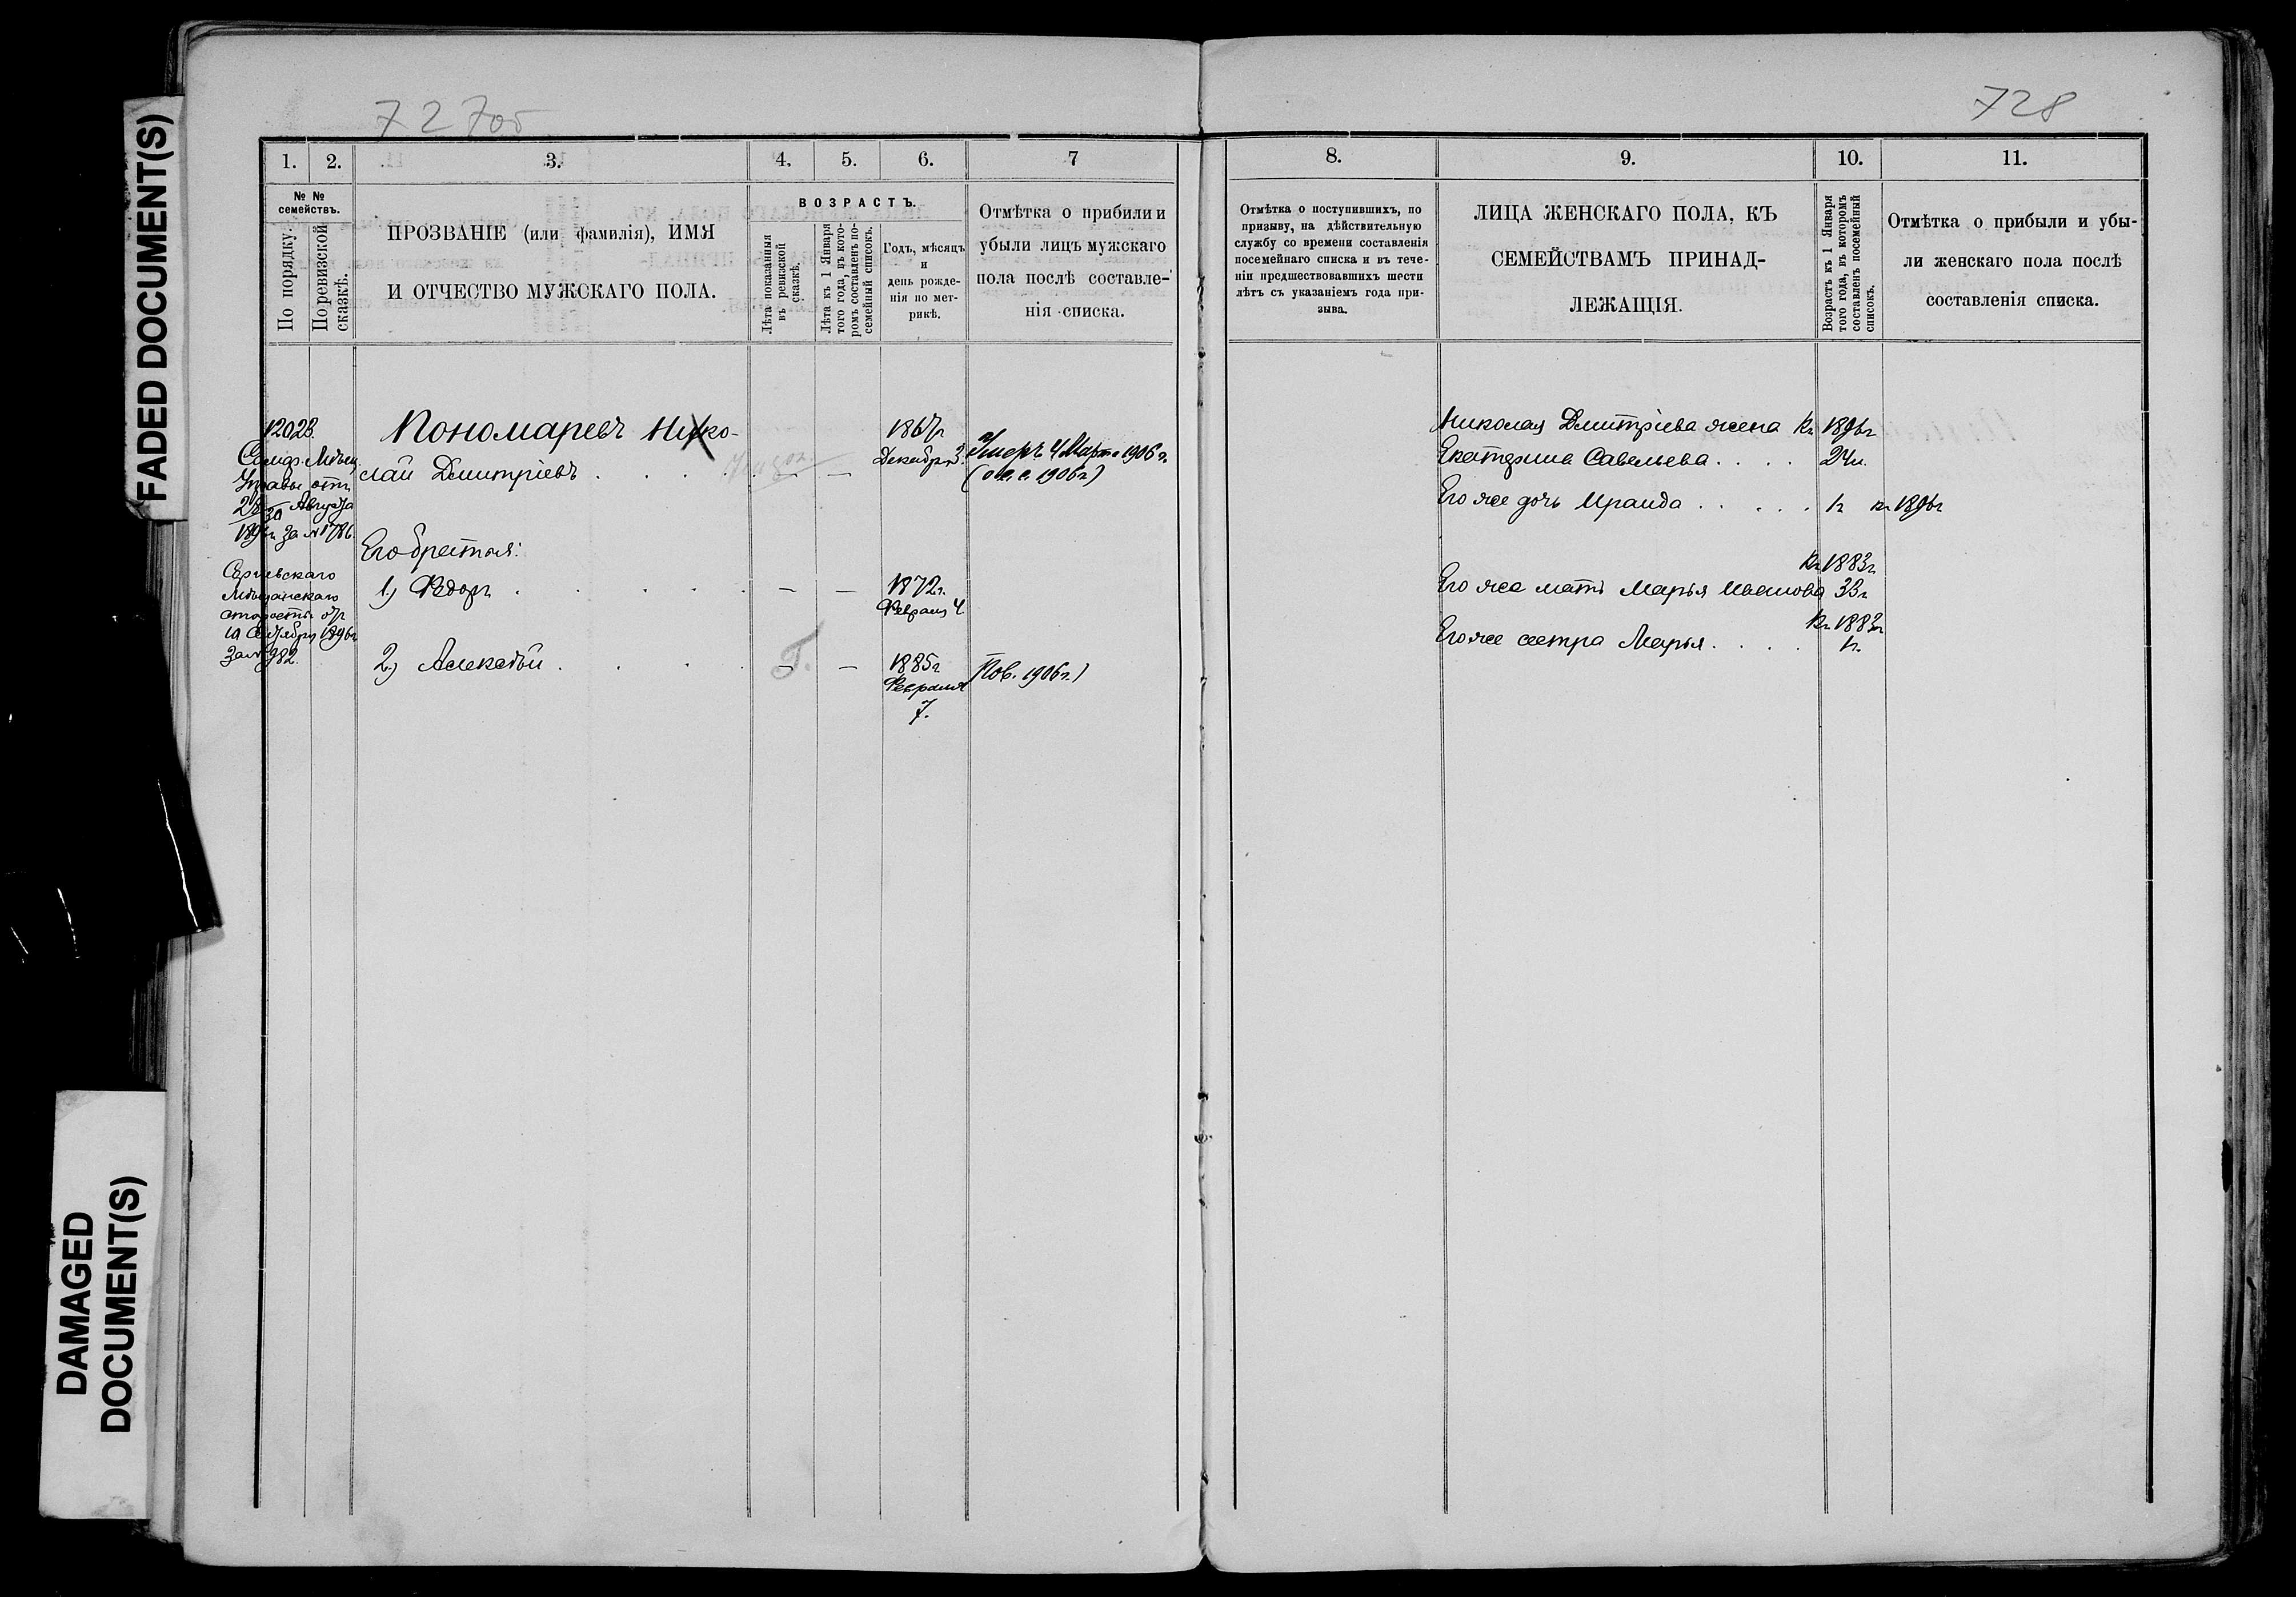 FADED DOCUMENT(S)
DAMAGED
DOCUMENT(S)
727об
1. 2. 3. 4. 5. 6. 7
№ №
семействъ.
По порядку.
По ревизской
сказкѣ.
ПРОЗВАНІЕ (или фамилія), ИМЯ
И ОТЧЕСТВО МУЖСКАГО ПОЛА.
ВОЗРАСТЪ.
Лѣта показанныя
въ ревизской
сказкѣ.
Лѣта къ 1 Января
того года, въ кото-
ромъ составленъ по-
семейный списокъ.
Годъ, мѣсяцъ
и
день рожде-
нія по мет-
рикѣ.
Отмѣтка о прибыли и
убыли лицъ мужскаго
пола послѣ составле-
нія списка.
12028.
Самар. Мѣщ.
Управы отъ
28/30 Августа
1896г. за № 1786.
Сергіевскаго
Мѣщанскаго
старосты отъ
19 Сентября 1896г.
за № 982.
Пономаревъ Нико-
лай Дмитріевъ . . . — —
1867г
Декабря 3.
Умеръ 4 Марта 1906 г.
(о.с.с. 1906г)
Его братья:
1.) Ѳедоръ . . . . — — 1872г.
Февраля 4
2.) Алексѣй . . . . Г. — — 1885г
Февраля
7.
Пов. 1906г.)
728
8. 9. 10. 11.
Отмѣтка о поступившихъ, по
призыву, на дѣйствительную
службу со времени составленія
посемейнаго списка и въ тече-
ніи предшествовавшихъ шести
лѣтъ съ указаніемъ года при-
зыва.
ЛИЦА ЖЕНСКАГО ПОЛА, КЪ
СЕМЕЙСТВАМЪ ПРИНАД-
ЛЕЖАЩІЯ.
Возрастъ къ 1 Января
того года, въ которомъ
составленъ посемейный
списокъ.
Отмѣтка о прибыли и убы-
ли женскаго пола послѣ
составленія списка.
Николая Дмитріева жена Къ 1896г
Екатерина Савельева . . . . 24л.
Его же дочь Ираида . . . . . 1г къ 1896г
Къ 1883г.
Его же мать Марья Иванова 33г
Къ 1883г
Его же сестра Марья . . . . 1г.